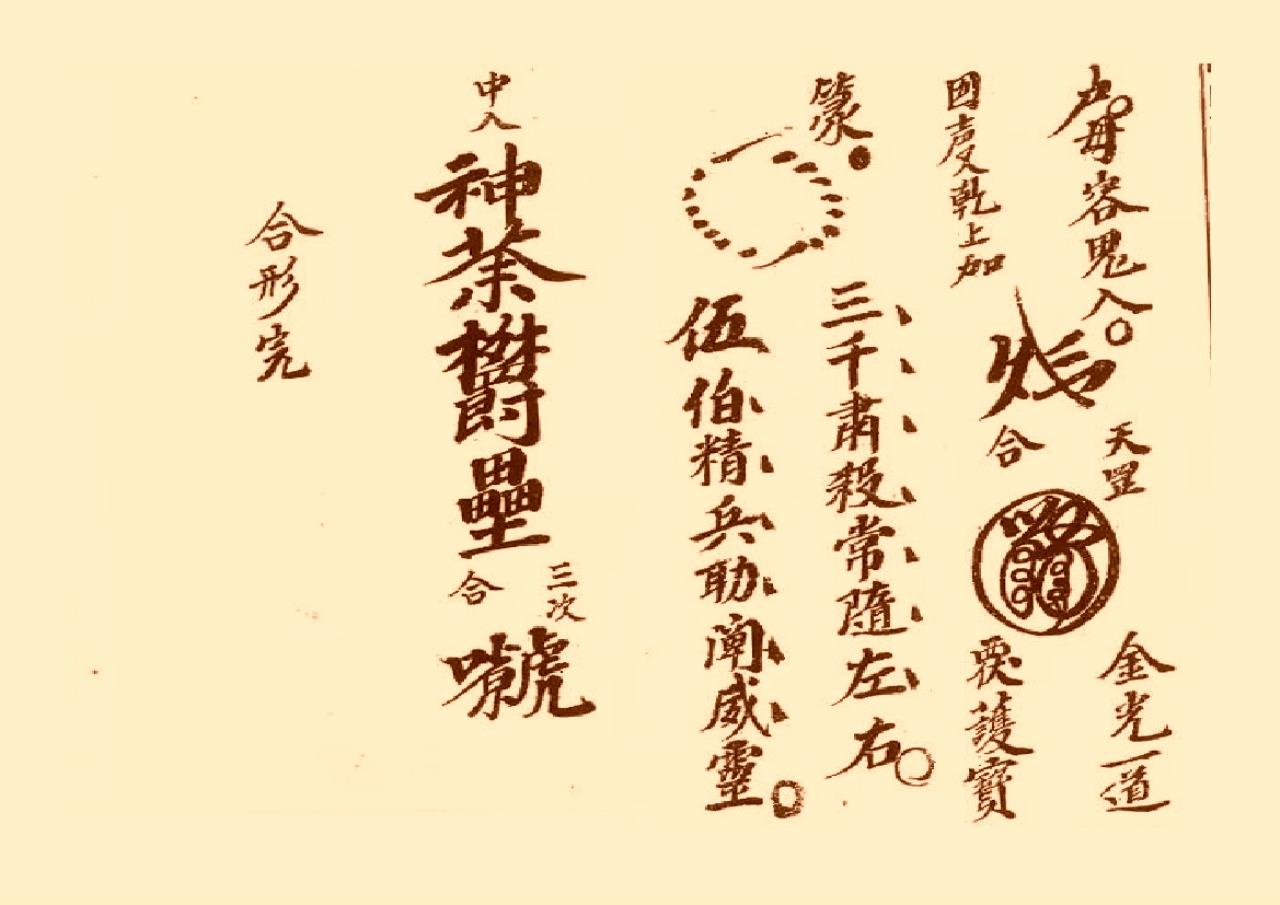 毋容鬼入
天罡
金光一道
乾上加
合
護寶
篆
三千肅殺常隨左右
伍伯精兵助闡威靈
中入
神荼欝壘
三次
合
合形完